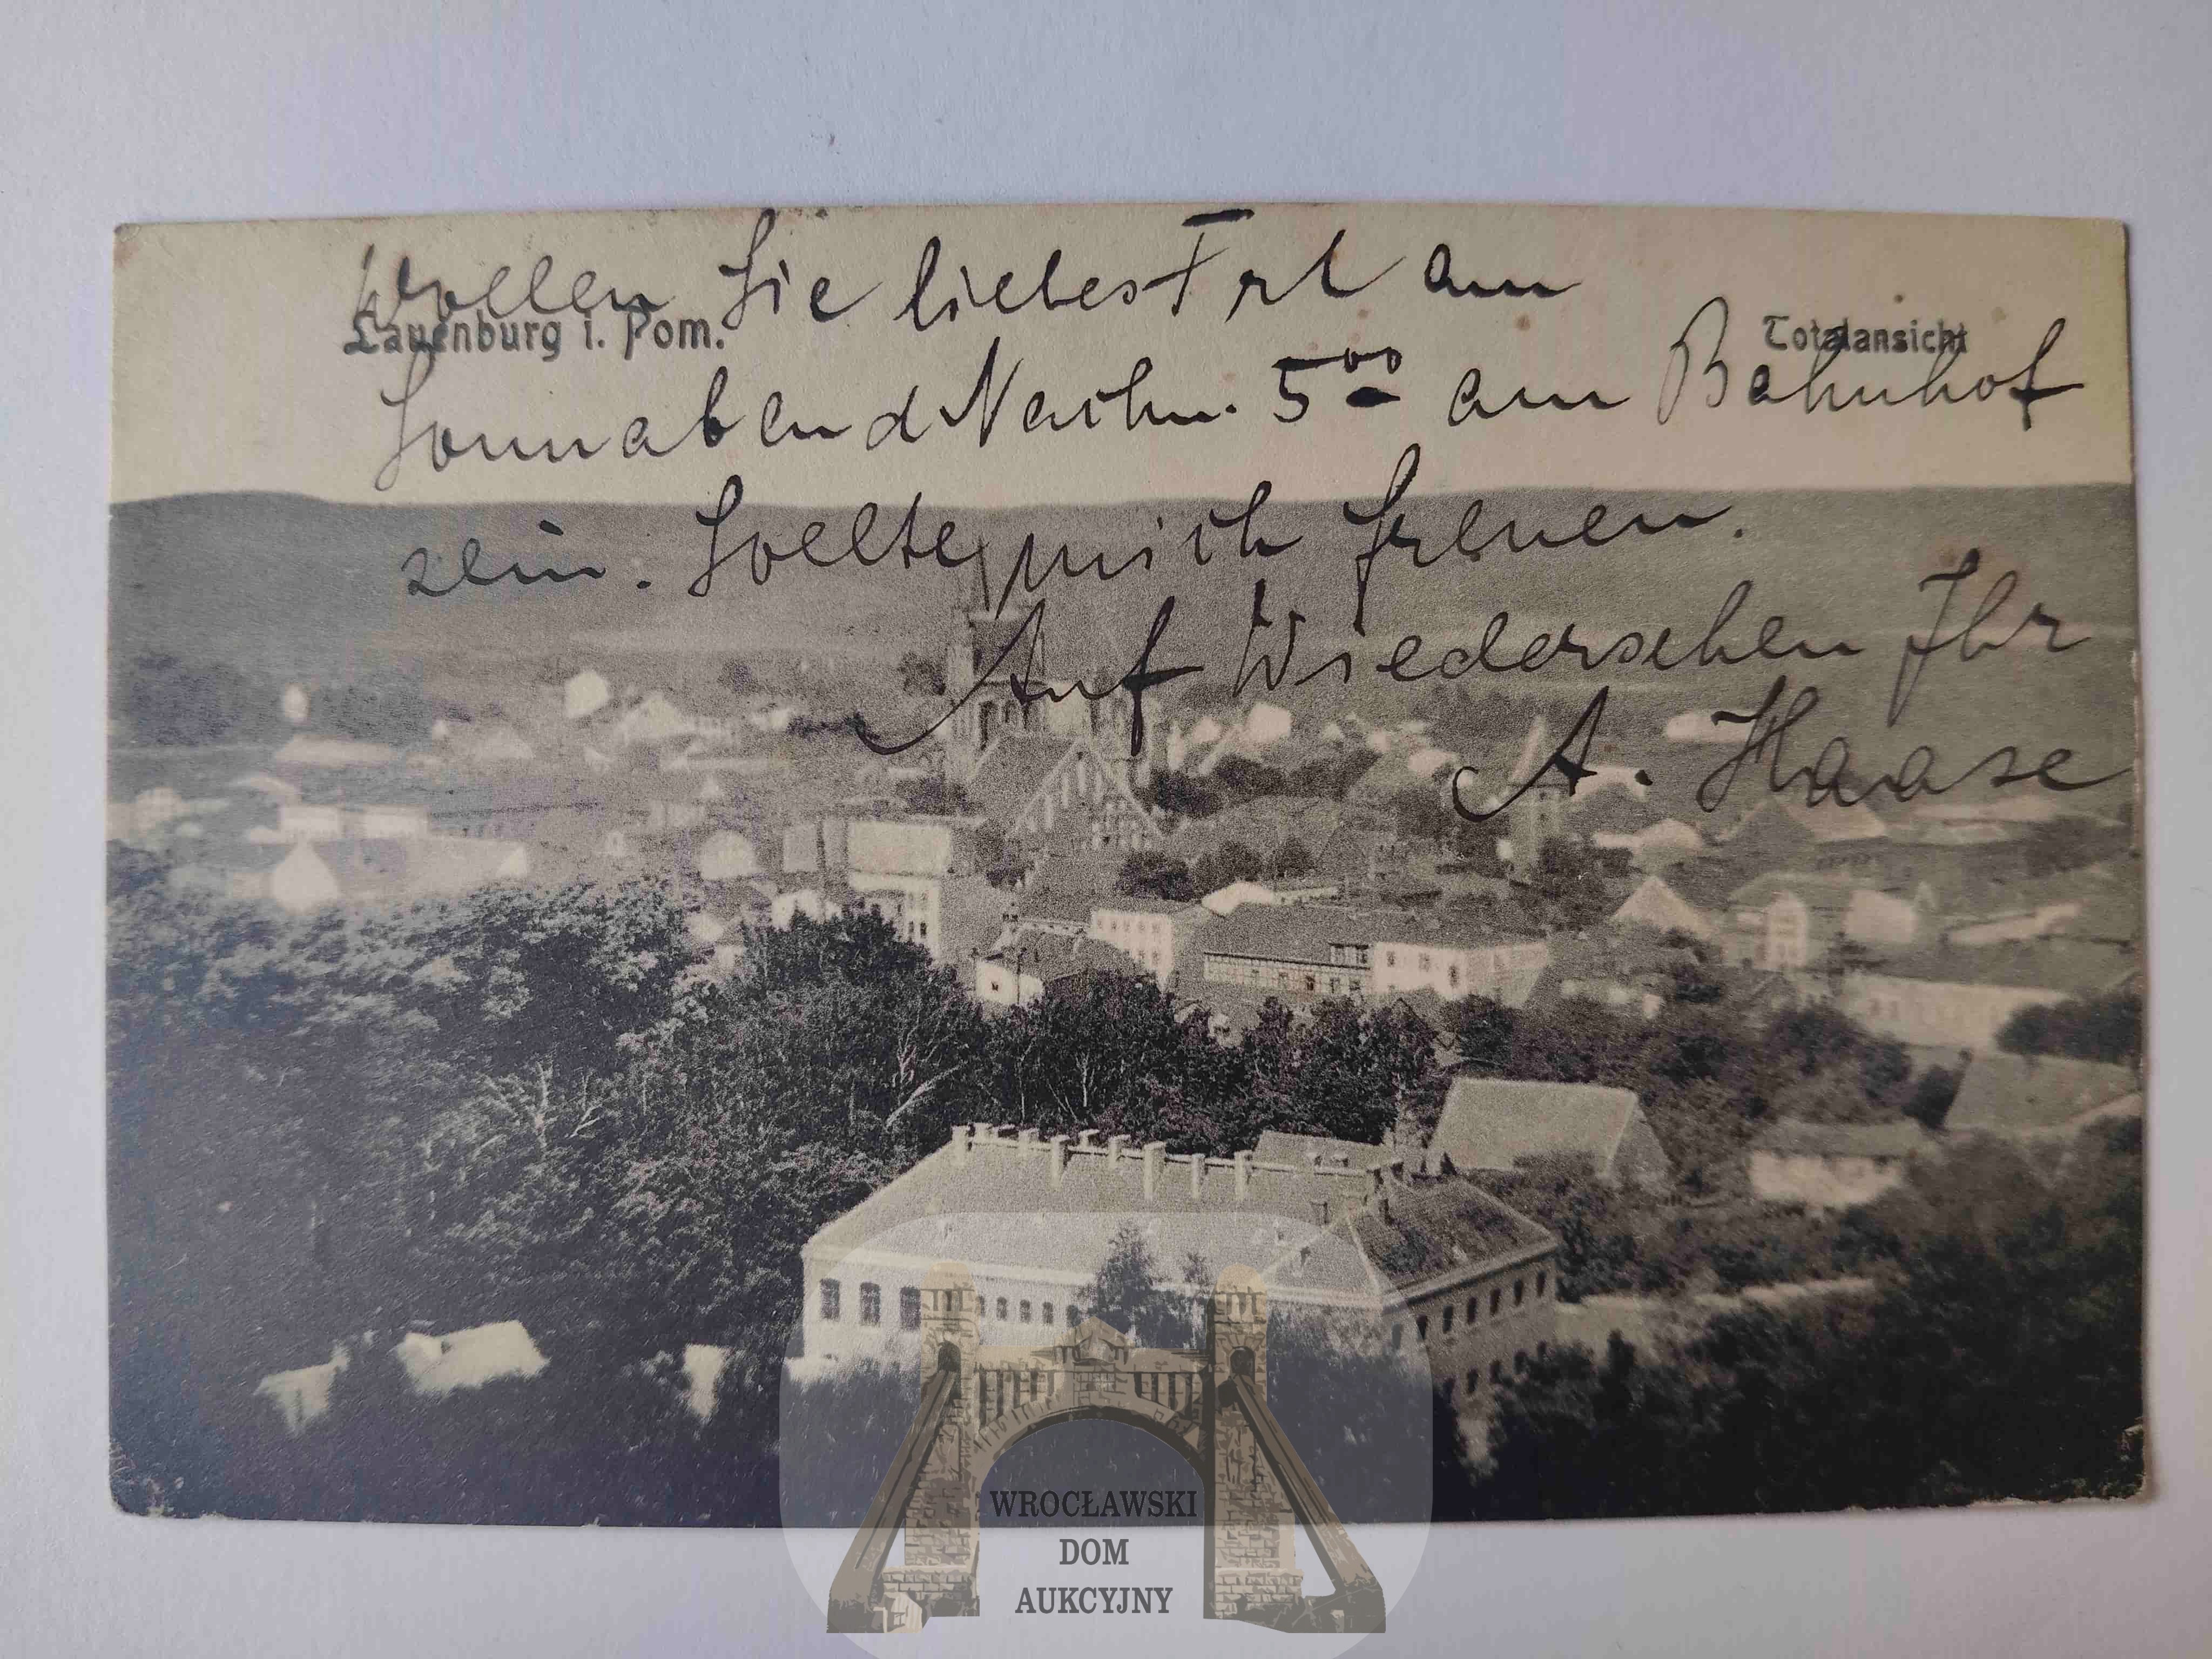 Wollen Sie liebes Frl am
Lauenburg i. Pom.
Totalansicht
Sonnabend Nachm. 5 00 am Bahnhof
sein. Sollte mich freuen.
Auf Wiedersehen Ihr
A. Haase
WROCŁAWSKI
DOM
AUKCYJNY